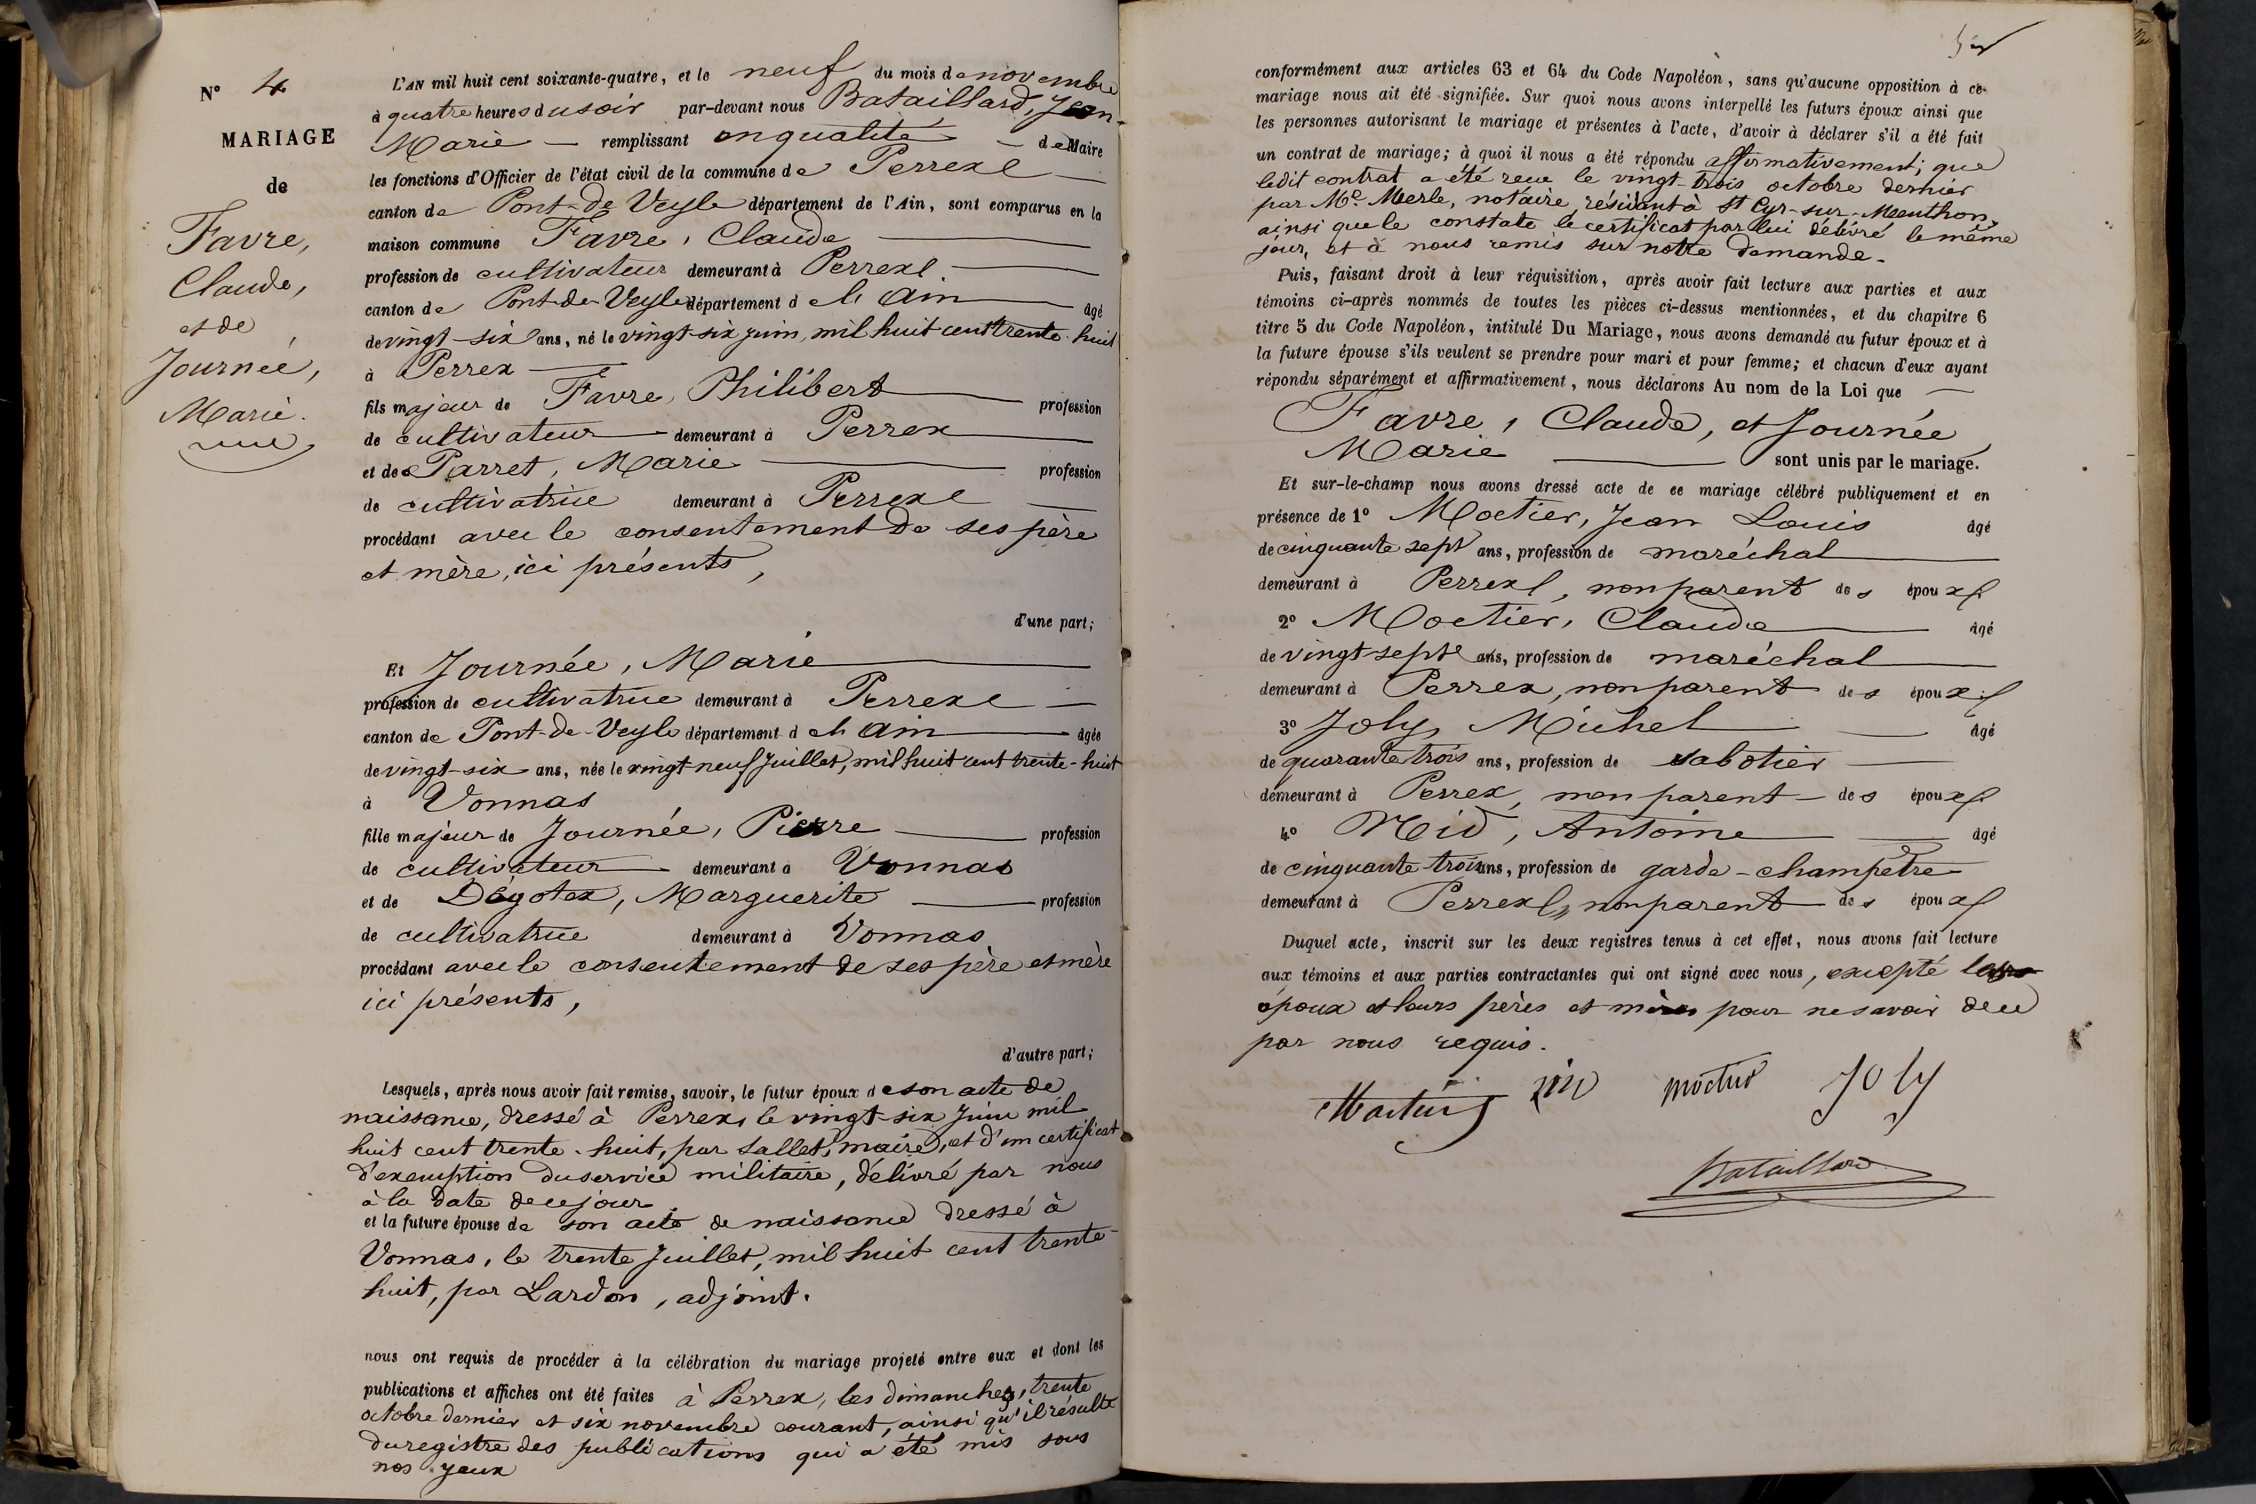 N° 4
MARIAGE
de
Favre,
Claude,
et de
Journée,
Marie.
L'AN mil huit cent soixante-quatre, et le neuf du mois de novembre
à quatre heures du soir par-devant nous Bataillard, Jean
Marie — remplissant en qualité — de Maire
les fonctions d'Officier de l'état civil de la commune de Perrex
canton de Pont-de-Veyle département de l'Ain, sont comparus en la
maison commune Favre, Claude
profession de cultivateur demeurant à Perrex.
canton de Pont-de-Veyle département de l'Ain âgé
de vingt-six ans, né le vingt-six juin, mil huit cent trente-huit
à Perrex
fils majeur de Favre, Philibert profession
de cultivateur demeurant à Perrex
et de Parret, Marie profession
de cultivatrice demeurant à Perrex
procédant avec le consentement de ses père
et mère, ici présents,
d'une part;
Et Journée, Marie
profession de cultivatrice demeurant à Perrex
canton de Pont-de-Veyle département de l'Ain âgée
de vingt-six ans, née le vingt-neuf Juillet, mil huit cent trente-huit
à Vonnas
fille majeur de Journée, Pierre profession
de cultivateur demeurant à Vonnas
et de Dégotex, Marguerite profession
de cultivatrice demeurant à Vonnas
procédant avec le consentement de ses père et mère
ici présents,
d'autre part;
Lesquels, après nous avoir fait remise, savoir, le futur époux de son acte de
naissance, dressé à Perrex, le vingt-six Juin mil
huit cent trente-huit, par Sallet, maire, et d'un certificat
d'exemption du service militaire, délivré par nous
à la date de ce jour
et la future épouse de son acte de naissance dressé à
Vonnas, le trente Juillet, mil huit cent trente-
huit, par Lardon, adjoint.
nous ont requis de procéder à la célébration du mariage projeté entre eux et dont les
publications et affiches ont été faites à Perrex, les dimanches, trente
octobre dernier et six novembre courant, ainsi qu'il résulte
du registre des publications qui a été mis sous
nos yeux
conformément aux articles 63 et 64 du Code Napoléon, sans qu'aucune opposition à ce
mariage nous ait été signifiée. Sur quoi nous avons interpellé les futurs époux ainsi que
les personnes autorisant le mariage et présentes à l'acte, d'avoir à déclarer s'il a été fait
un contrat de mariage; à quoi il nous a été répondu affirmativement; que
ledit contrat a été reçu le vingt-trois octobre dernier
par Me. Merle, notaire, résidant à St Cyr-sur-Menthon,
ainsi que le constate le certificat par lui délivré le même
jour, et à nous remis sur notre demande.
Puis, faisant droit à leur réquisition, après avoir fait lecture aux parties et aux
témoins ci-après nommés de toutes les pièces ci-dessus mentionnées, et du chapitre 6
titre 5 du Code Napoléon, intitulé Du Mariage, nous avons demandé au futur époux et à
la future épouse s'ils veulent se prendre pour mari et pour femme; et chacun d'eux ayant
répondu séparément et affirmativement, nous déclarons Au nom de la Loi que
Favre, Claude, et Journée
Marie sont unis par le mariage.
Et sur-le-champ nous avons dressé acte de ce mariage célébré publiquement et en
présence de 1° Moctier, Jean Louis âgé
de cinquante sept ans, profession de maréchal
demeurant à Perrex, non parent des époux.
2° Moctier, Claude âgé
de vingt sept ans, profession de maréchal
demeurant à Perrex, non parent des époux.
3° Joly, Michel âgé
de quarante trois ans, profession de sabotier
demeurant à Perrex, non parent des époux.
4° Nid, Antoine âgé
de cinquante trois ans, profession de garde-champêtre
demeurant à Perrex, non parent des époux
Duquel acte, inscrit sur les deux registres tenus à cet effet, nous avons fait lecture
aux témoins et aux parties contractantes qui ont signé avec nous, excepté les
époux et leurs pères et mères pour ne savoir de ce
par nous requis.
nid moctié Joly
Bataillard